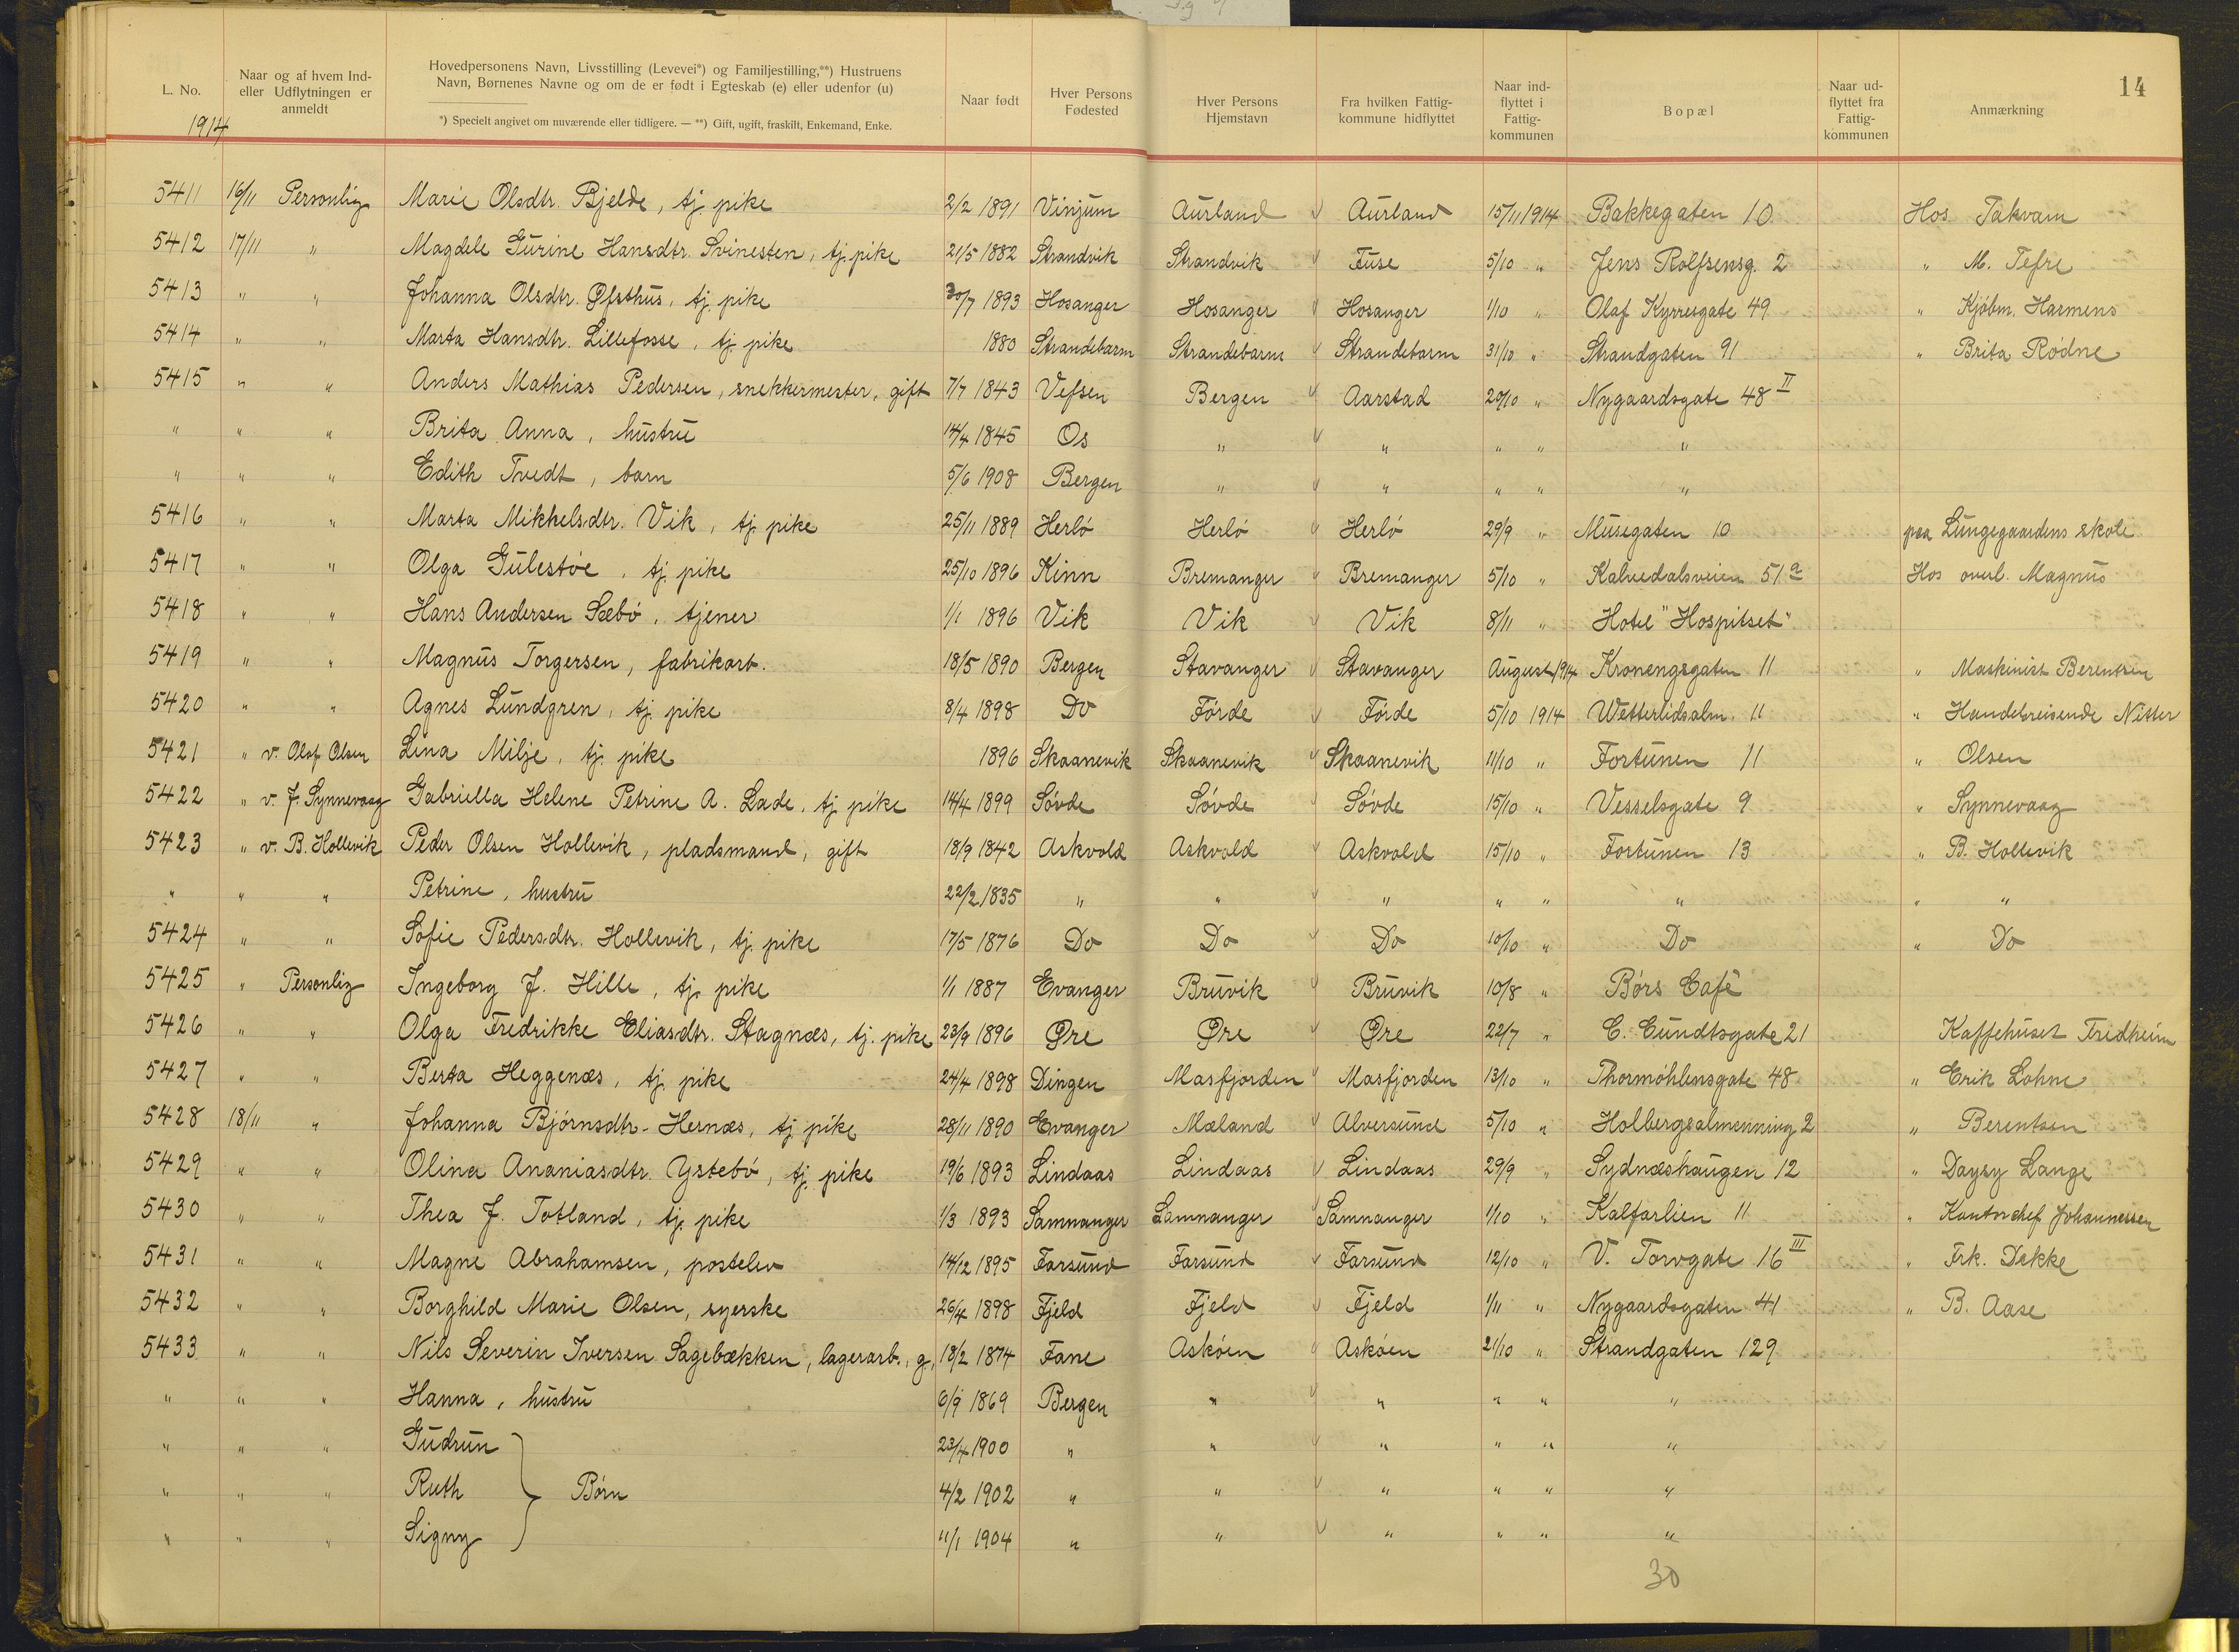 14
L. No. Naar og af hvem Ind- eller Udflytningen er anmeldt Hovedpersonens Navn, Livsstilling (Levevei*) og Familjestilling,**) Hustruens Navn, Børnenes Navne og om de er født i Egteskab (e) eller udenfor (u) Naar født Hver Persons Fødested Hver Persons Hjemstavn Fra hvilken Fattig- kommune hidflyttet Naar ind- flyttet i Fattig- kommunen Bopæl Naar ud- flyttet fra Fattig- kommunen Anmærkning
*) Specielt angivet om nuværende eller tidligere. — **) Gift, ugift, fraskilt, Enkemand, Enke.
1914
5411 16/11 Personlig Marie Olsdtr. Bjelde, tj. pike 2/2 1891 Vinjum Aurland Aurland 15/11 1914 Bakkegaten 10 Hos Takvam
5412 17/11 " Magdele Gurine Hansdtr. Svinesten, tj. pike 21/5 1882 Strandvik Strandvik Fuse 5/10 " Jens Rolfsensg. 2 " M. Tefre
5413 " " Johanna Olsdtr. Øfsthus, tj. pike 30/7 1893 Hosanger Hosanger Hosanger 1/10 " Olaf Kyrresgate 49 " Kjøbm. Harmens
5414 " " Marta Hansdtr. Lillefosse, tj. pike 1880 Strandebarm Strandebarm Strandebarm 31/10 " Strandgaten 91 " Brita Rødne
5415 " " Anders Mathias Pedersen, snekkermester, gift 7/7 1843 Vefsen Bergen Aarstad 20/10 " Nygaardsgate 48 II
" " " Brita Anna, hustru 14/4 1845 Os " " " " "
" " " Edith Tvedt, barn 5/6 1908 Bergen " " " " "
5416 " " Marta Mikkelsdtr. Vik, tj. pike 25/11 1889 Herlø Herlø Herlø 29/9 " Musegaten 10 paa Lungegaardens skole
5417 " " Olga Gulestøe, tj. pike 25/10 1896 Kinn Bremanger Bremanger 5/10 " Kalvedalsveien 51a Hos overl. Magnus
5418 " " Hans Andersen Sæbø, tjener 1/1 1896 Vik Vik Vik 8/11 " Hotel "Hospitset"
5419 " " Magnus Torgersen, fabrikarb. 18/5 1890 Bergen Stavanger Stavanger August 1914 Kronengsgaten 11 " Maskinist Berentsen
5420 " " Agnes Lundgren, tj. pike 8/4 1898 Do Førde Førde 5/10 1914 Wetterlidsalm. 11 " Handelsreisende Nitter
5421 " v. Olaf Olsen Lina Milje, tj. pike 1896 Skaanevik Skaanevik Skaanevik 11/10 " Fortunen 11 " Olsen
5422 " v. J. Synnevaag Gabriella Helene Petrine A. Lade, tj. pike 14/4 1899 Søvde Søvde Søvde 15/10 " Vesselsgate 9 " Synnevaag
5423 " v. B. Hollevik Peder Olsen Hollevik, pladsmand, gift 18/9 1842 Askvold Askvold Askvold 15/10 " Fortunen 13 " B. Hollevik
" " " Petrine, hustru 22/2 1835 " " " " " " " "
5424 " " Sofie Pedersdtr. Hollevik, tj. pike 17/5 1876 Do Do Do 10/10 " Do " Do
5425 " Personlig Ingeborg J. Hille, tj. pike 1/1 1887 Evanger Bruvik Bruvik 10/8 " Børs Café
5426 " " Olga Fredrikke Eliasdtr. Stagnæs, tj. pike 23/9 1896 Øre Øre Øre 22/7 " C. Sundtsgate 21 Kaffehuset Fredheim
5427 " " Berta Heggenæs, tj. pike 24/4 1898 Dingen Masfjorden Masfjorden 13/10 " Thormøhlensgate 48 " Erik Lohne
5428 18/11 " Johanna Bjørnsdtr. Hernæs, tj. pike 28/11 1890 Evanger Mæland Alversund 5/10 " Holbergsalmenning 2 " Berentsen
5429 " " Olina Ananiasdtr. Ystebø, tj. pike 19/6 1893 Lindaas Lindaas Lindaas 29/9 " Sydnæshaugen 12 " Daysy Lange
5430 " " Thea J. Totland, tj. pike 1/3 1893 Samnanger Samnanger Samnanger 1/10 " Kalfarlien 11 " Kontorchef Johannessen
5431 " " Magne Abrahamsen, postelev 14/12 1895 Farsund Farsund Farsund 12/10 " V. Torvgate 16 III " Frk. Dekke
5432 " " Borghild Marie Olsen, syerske 26/4 1898 Fjeld Fjeld Fjeld 1/11 " Nygaardsgaten 41 " B. Aase
5433 " " Nils Severin Iversen Sagebækken, lagerarb., g. 18/2 1874 Fane Askøen Askøen 21/10 " Strandgaten 129
" " " Hanna, hustru 6/9 1869 Bergen " " " " "
" " " Gudrun 23/4 1900 " " " " " "
" " " Ruth Børn 4/2 1902 " " " " " "
" " " Signy 11/1 1904 " " " " " "
30